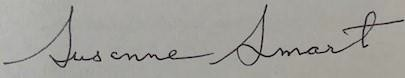 Susanne Smart